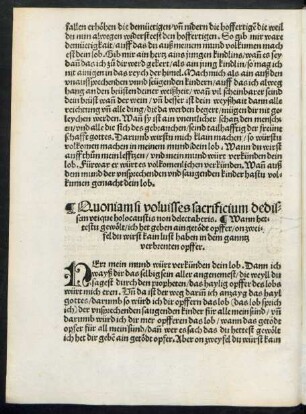 fallen erhöhen die demüetigen/ vñ nidern die hoffertigē die weil
du nun alwegen widerstreest den hoffertigen. So gib mir ware
demüetigkait/ auff das du auß meinem mund volkumen mach-
est dein lob. Gib mir ain herg ains jungen kindling/ wañ es sey
dañ das ich zů dir werd gekert/ als ain jung kindling/ so mag ich
nit aingen in das reych der himel. Mach mich als ain auß den
vnausprechenden vnnd seügenden kindern/ auff das ich alweg
hang an den brüsten deiner weyßhait/ wañ vil scheinbarer seind
dein brüst wañ der wein/ vñ besser ist dein weyßhait dann alle
reichung vñ alle ding/ die da werden begert/ mügen dir nit ge-
leychen werden. Wañ sy ist ain vnentlicher schatz den mensch-
en/ vnd alle die sich des gebrauchen/ send tailhafftig der freünt-
schafft gottes. Darumb würstu mich klain machen/ so würstu
volkomen machen in meinem mund dein lob. Wann du würst
auff thůn mein leffgen/ vnd mein mund würt verkünden dein
lob. Für war er würt es volkomenlichen verkünden. Wañ auß
dem mund der vnsprechenden vnd saugenden kinder hastu vol-
kumen gemacht dein lob.
¶ Quoniam si voluisses sacrificium dedis-
sem vtique holocaustis non delectaberis. ¶ Wann het-
testu gewölt/ ich het geben ain getödt opffer/ on zwei-
fel du würst kain lust haben in dem gantz
verbrenten opffer.
HErr mein mund würt verkünden dein lob. Dann ich
wayß dir das selbig sein aller angenemest/ die weyl du
sagest durch den propheten/ das haylig opffer des lobs
würt mich eren. Vñ da ist der weg darin ich anzayg das hayl
gottes/ darumb so würd ich dir opffern das lob (das lob sprich
ich) der vnsprechenden saugenden kinder für alle mein sünd/ vñ
darumb würd ich dir mer opfferen das lob/ wann das getödt
opfer für all mein sünd/ dañ wer es sach das du hettest gewölt
ich het dir gebē ain getödt opfer. Aber on zweyfel du würst kain